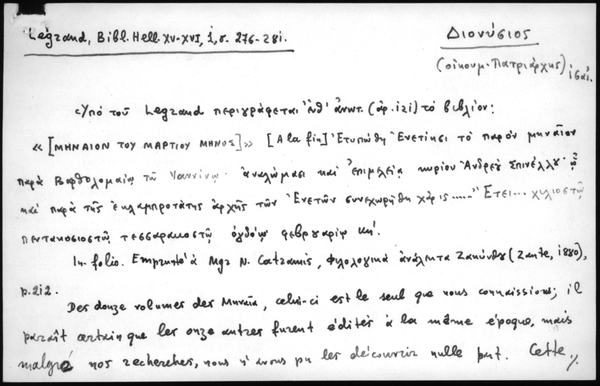 Legrand, Bibl. Hell. XV-XVI, 1, σ. 276-281.
Διονύσιος
(οἰκουμ. Πατριάρχης)
Ὑπό τοῦ Legrand περιγράφεται (ἀρ. 121) τό βιβλίον:
«[ΜΗΝΑΙΟΝ ΤΟΥ ΜΑΡΤΙΟΥ ΜΗΝΟΣ]» [A la fin] Ἐτυπώθη Ἐνετίησι τό παρόν μηναῖον
παρά Βαρθολομαίῳ τῷ Ἰαννίνῳ· ἀναλώμασι καί ἐπιμελείᾳ κυρίου Ἀνδρέου Σπινέλλου· ᾧ
καί παρά τῆς ἐκλαμπροτάτης ἀρχῆς τῶν Ἐνετῶν συνεχωρήθη χάρις....." Ἔτει... χιλιοστῷ
πεντακοσιοστῷ τεσσαρακοστῷ ὀγδόῳ φεβρουαρίῳ κη'.
In folio. Emprunté à Mgr N. Catramis, Φιλολογικά ἀνάλεκτα Ζακύνθου (Zante, 1880),
p. 212.
Des douze volumes des Μηναῖα, celui-ci est le seul que nous connaissions; il
paraît certain que les onze autres furent édités à la même époque, mais
malgré nos recherches, nous n'avons pu les découvrir nulle part. Cette